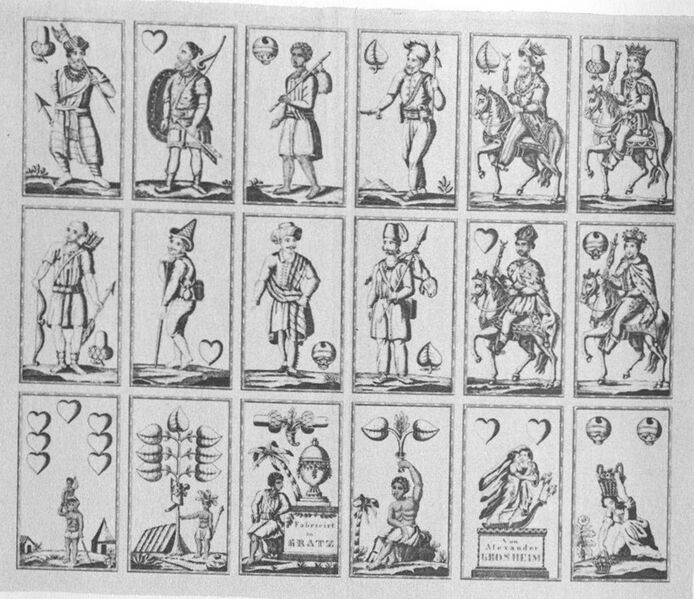 Fabricirt
in
GRATZ
Von
Alexander
GROSHEIM